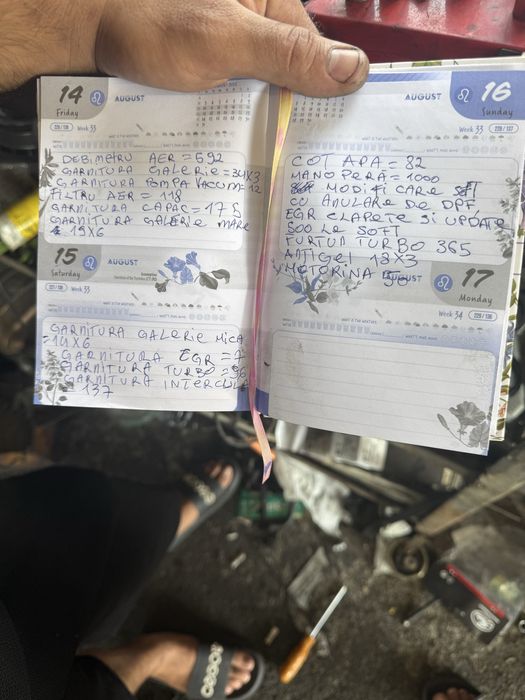 14
Friday
AUGUST
Week 33
DEBIMETRU AER = 592
GARNITURA GALERIE = 34X3
GARNITURA POMPA VACUM = 12
FILTRU AER = 118
GARNITURA CAPAC = 175
GARNITURA GALERIE MARE
19X6
15
Saturday
AUGUST
Week 33
GARNITURA GALERIE MICA
= 14X6
GARNITURA EGR = 7
GARNITURA TURBO = 36
GARNITURA INTERCULE
137
AUGUST
16
Sunday
Week 33
COT APA = 82
MANOPERA = 1000
MODIFICARE SOFT
CU ANULARE DE DPF
EGR CLAPETE SI UPDATE
500 LE SOFT
FURTUN TURBO 365
ANTIGEL 18X3
MOTORINA 50
AUGUST
17
Monday
Week 34